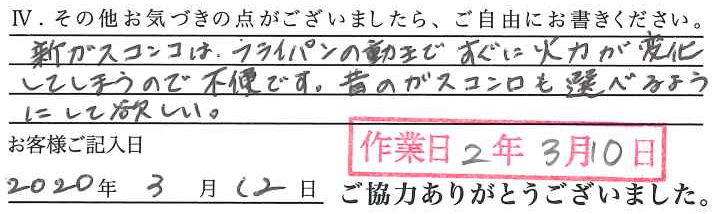 Ⅳ．その他お気づきの点がございましたら、ご自由にお書きください。
新ガスコンロは、フライパンの動きですぐに火力が変化
してしまうので不便です。昔のガスコンロも選べるよう
にして欲しい。
お客様ご記入日
作業日2年3月10日
2020年 3月 12日 ご協力ありがとうございました。